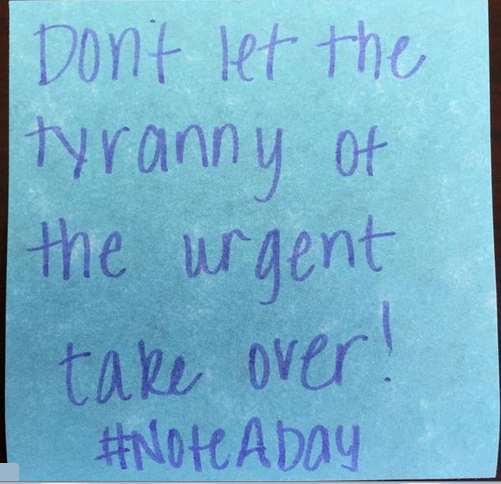 Don't let the
tyranny of
the urgent
take over!
#NoteADay